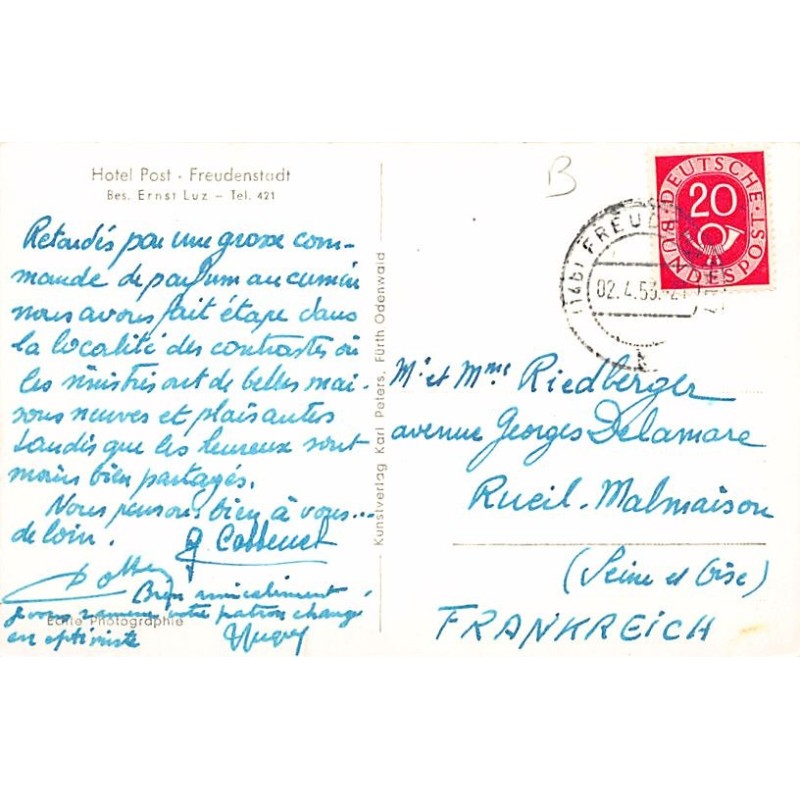 Hotel Post - Freudenstadt
Bes. Ernst Luz - Tel. 421
Retardés par une grosse com-
mande de parfum au cumin
nous avons fait étape dans
la localité des contrastes où
les sinistrés ont de belles mai-
sons neuves et plaisantes
tandis que les heureux sont
moins bien partagés.
Nous pensons bien à vous...
de loin.
Bien amicalement
je vous ramène votre patron changé
en optimiste
Echte Photographie
Kunstverlag Karl Peters, Fürth Odenwald
B
DEUTSCHE BUNDESPOST
20
(14b) FREUD
02.4.53.-21
Mr et Mme Riedberger
avenue Georges Delamare
Rueil-Malmaison
(Seine et Oise)
FRANKREICH